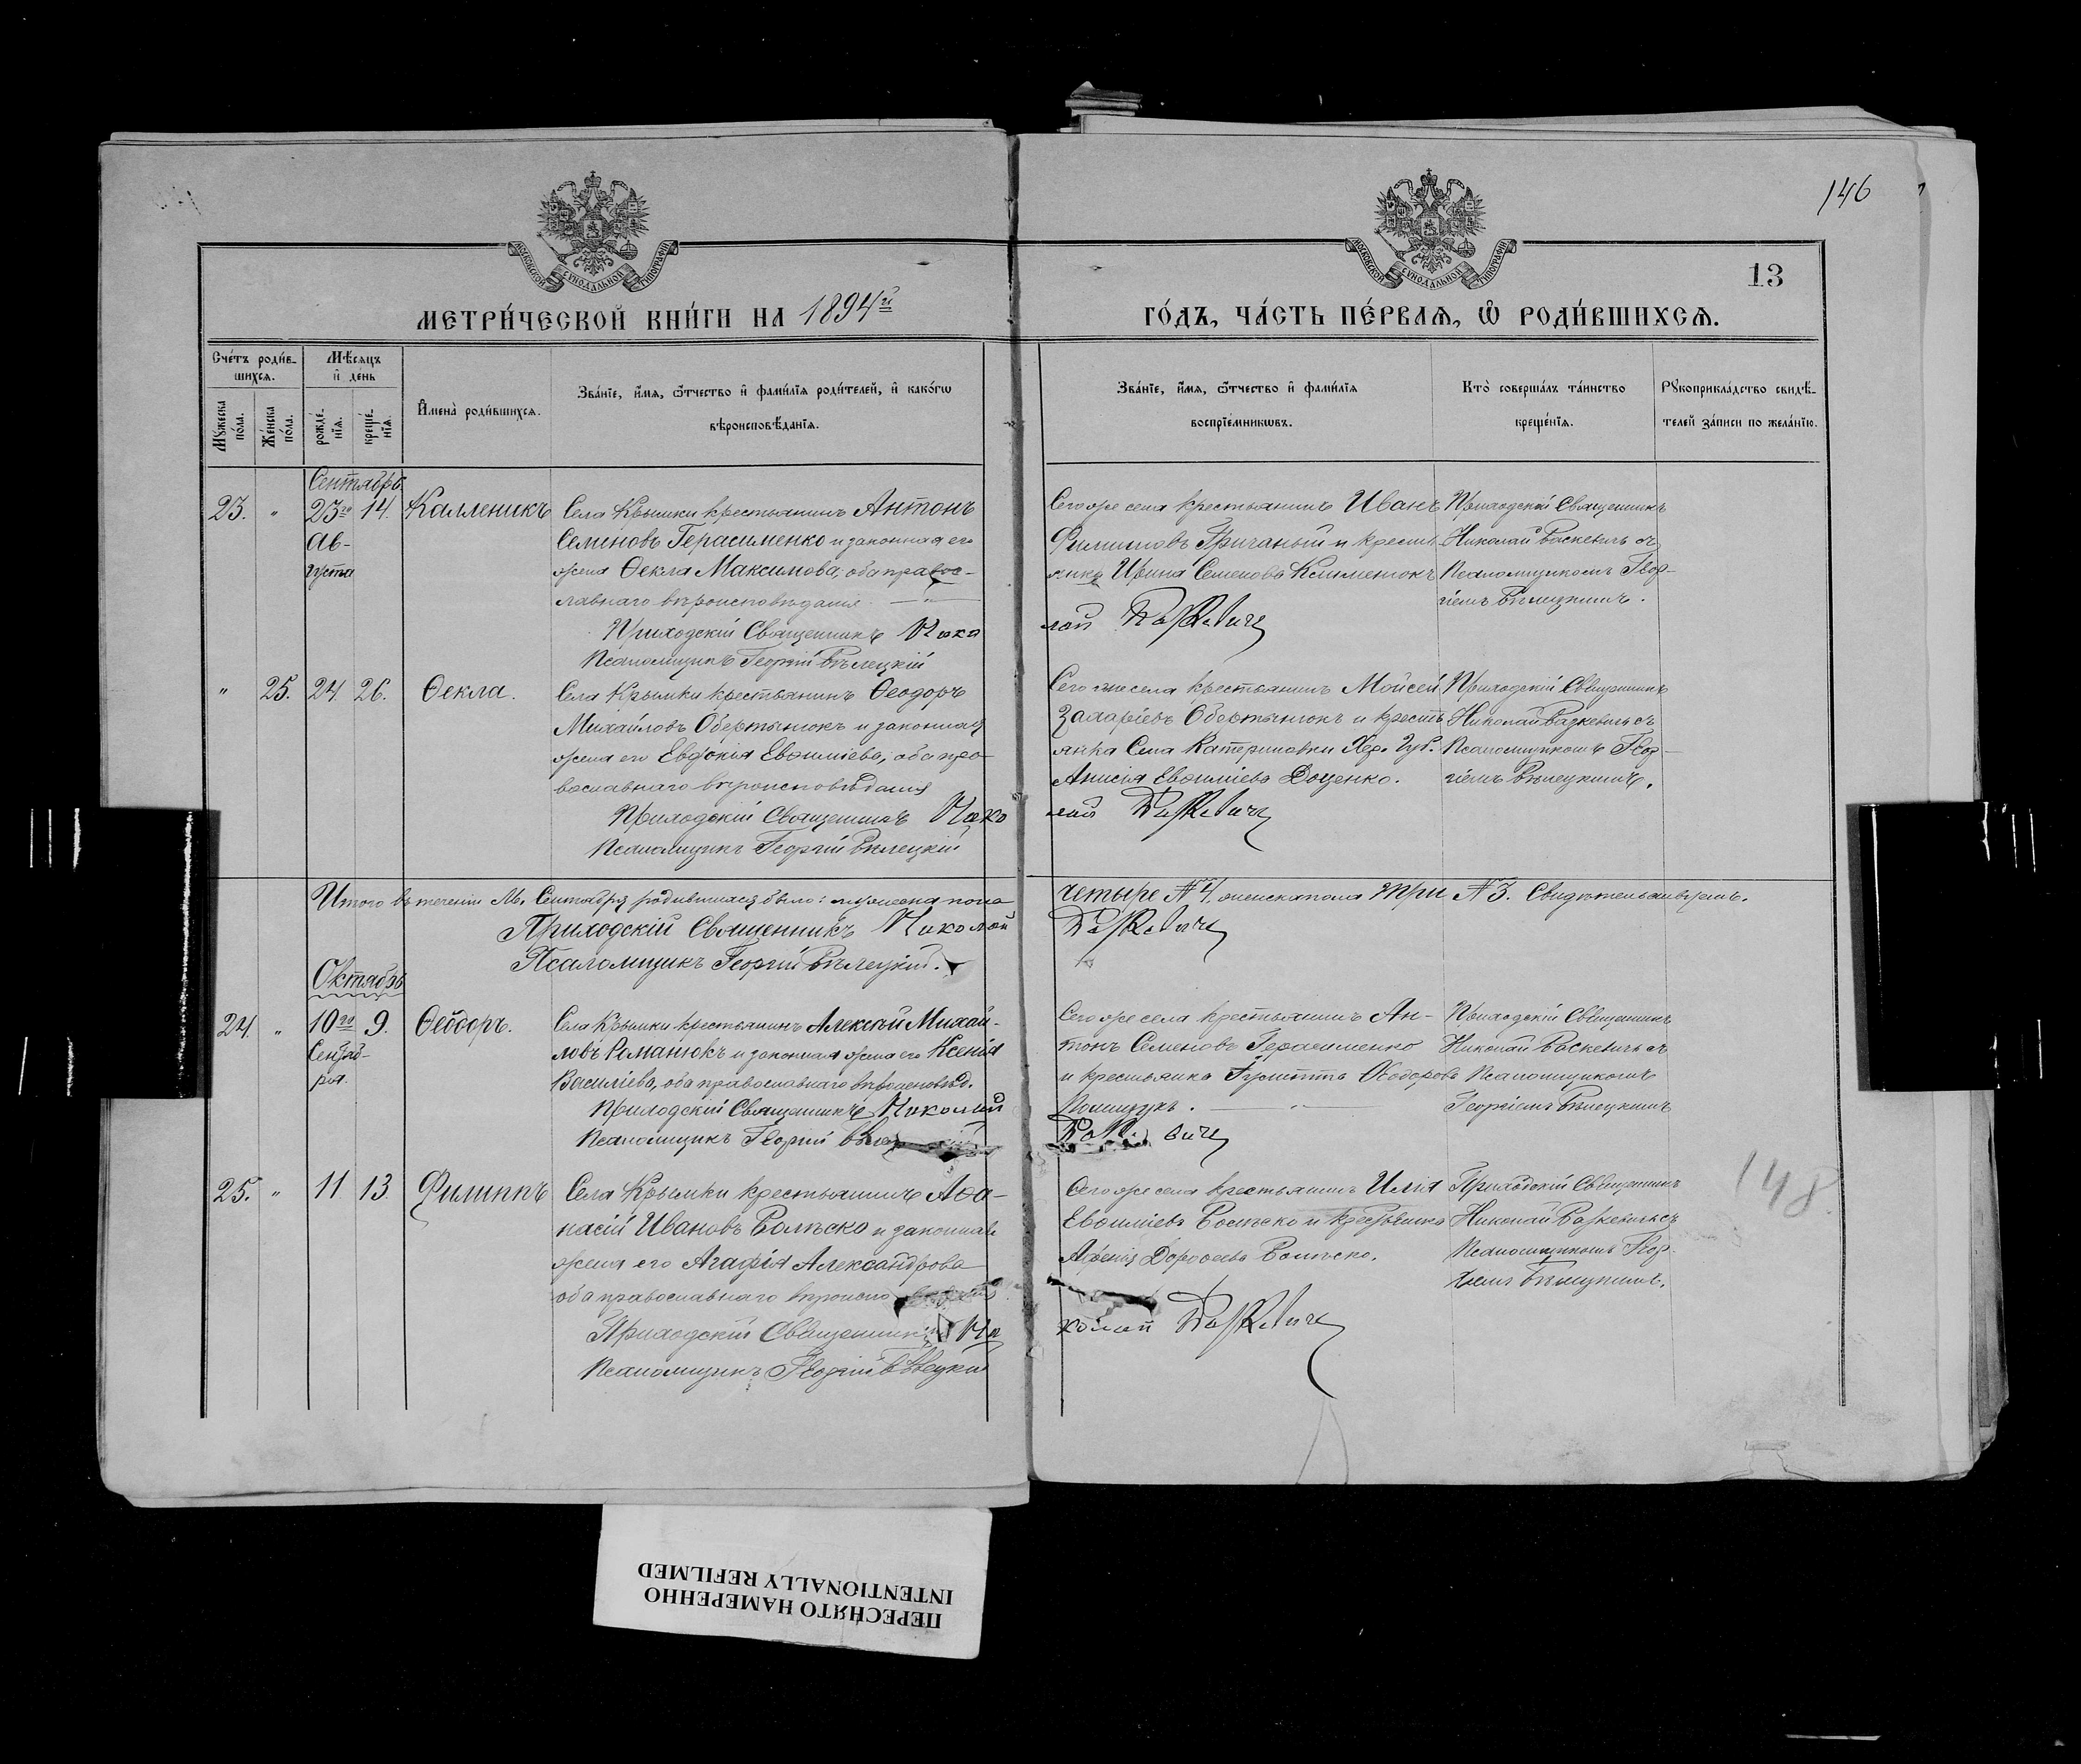 146
13
МОСКОВСКОЙ СУНОДАЛЬНОЙ ТИПОГРАФІИ
МОСКОВСКОЙ СУНОДАЛЬНОЙ ТИПОГРАФІИ
МЕТРИ́ЧЕСКОЙ КНИ́ГИ НА 1894й
ГО́ДЪ, ЧА́СТЬ ПЕ́РВАѦ, Ѡ҆ РОДИ́ВШИХСѦ.
Сче́тъ роди́в-
шихсѧ.
Мѣ́сѧцъ
и҆ де́нь
Мꙋ́жеска по́ла.
Же́нска по́ла.
рожде́-
нїѧ.
креще́-
нїѧ.
И҆мена̀ роди́вшихсѧ.
Зва́нїе, и҆́мѧ, ѻ҆́тчество и҆ фами́лїѧ роди́телей, и҆ како́гѡ
вѣроисповѣ́данїѧ.
Зва́нїе, и҆́мѧ, ѻ҆́тчество и҆ фами́лїѧ
воспрїе́мникѡвъ.
Кто̀ соверша́лъ та́инство
креще́нїѧ.
Рꙋкоприкла́дство свидѣ́-
телей за́писи по жела́нїю.
Сентябрь
23. " 23го 14. Каллиникъ
Ав-
густа
Села Крымки крестьянинъ Антонъ
Семеновъ Герасименко и законная его
жена Ѳекла Максимова, оба правос-
лавнаго вѣроисповѣданія. — " —
Приходскій Священникъ Нико
Псаломщикъ Георгій Бѣлецкій
Сего же села крестьянинъ Иванъ
Филипповъ и кресть
янка Ирина Семенова Клименюкъ
лай Васкевичъ
Приходскій Священникъ
Николай Васкевичъ съ
Псаломщикомъ Геор-
гіемъ Бѣлецкимъ.
" 25. 24 26. Ѳекла.
Села Крымки крестьянинъ Ѳеодоръ
Михайловъ Обертынюкъ и законная
жена его Евдокія Евѳиміева, оба пра-
вославнаго вѣроисповѣданія
Приходскій Священникъ Нико
Псаломщикъ Георгій Бѣлецкій
Сего же села крестьянинъ Мойсей
Захаріевъ Обертынюкъ и кресть
янка Села Катериновки Хер. Губ.
Анисія Евѳиміева Доценко.
лай Васкевичъ
Приходскій Священникъ
Николай Васкевичъ съ
Псаломщикомъ Геор-
гіемъ Бѣлецкимъ.
Итого въ теченіи М. Сентября родившихся было: мужеска пола
четыре № 4. женска пола три № 3.
Приходскій Священникъ Николай
Васкевичъ
Псаломщикъ Георгій Бѣлецкій.
Октябрь
24. " 10го 9. Ѳеодоръ.
Сентяб-
ря.
Села Крымки крестьянинъ Алексѣй Михай-
ловъ Романюкъ и законная жена его Ксенія
Василіева, оба православнаго вѣроисповѣд.
Приходскій Священникъ Николай
Псаломщикъ Георгій
Сего же села крестьянинъ Ан-
тонъ Семеновъ Герасименко
и крестьянка Ѳеодорова
Полищукъ. — " —
Приходскій Священникъ
Николай Васкевичъ съ
Псаломщикомъ
Георгіемъ Бѣлецкимъ
25. " 11 13 Филиппъ
Села Крымки крестьянинъ Аѳа-
насій Ивановъ Волѣско и законная
жена его Агафія Александрова
оба православнаго
Приходскій Священникъ Ни
Псаломщикъ Георгій Бѣлецкій
Сего же села крестьянинъ Илія
Евѳиміевъ Волѣско и крестьянка
Дороѳеева Волѣско.
колай Васкевичъ
Приходскій Священникъ
Николай Васкевичъ съ
Псаломщикомъ Геор-
гіемъ Бѣлецкимъ.
148
ПЕРЕСНЯТО НАМЕРЕННО
INTENTIONALLY REFILMED